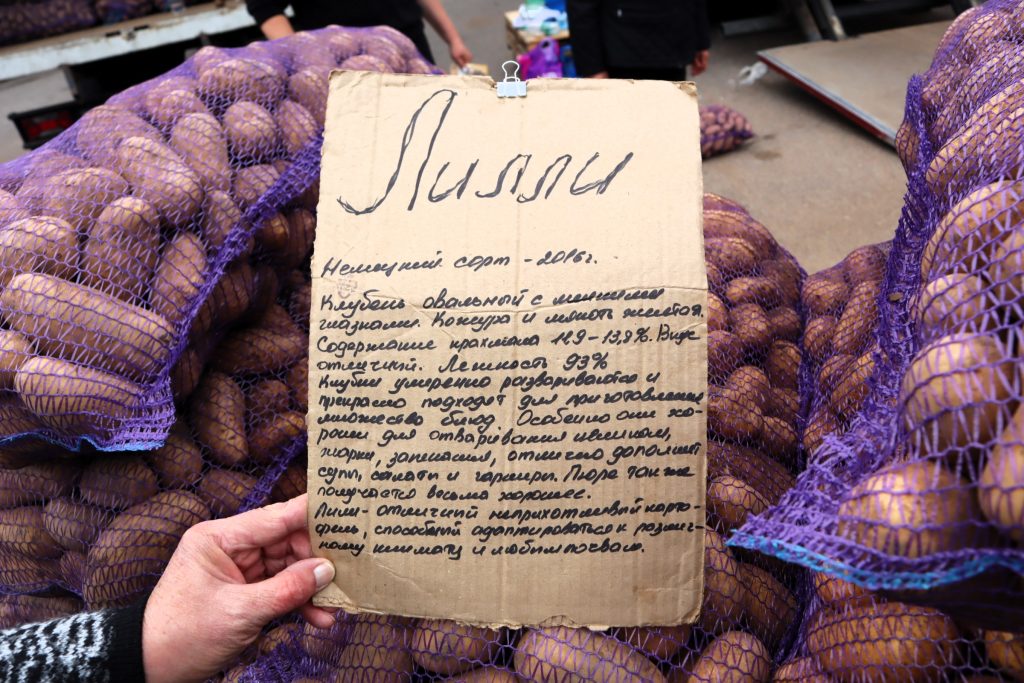 Лилли
Немецкий сорт - 2016г.
Клубень овальный с мелкими
глазками. Кожура и мякоть желтая.
Содержание крахмала 11,9-13,8%. Вкус
отличный. Лежкость 93%
Клубни умеренно развариваются и
прекрасно подходят для приготовления
множество блюд. Особенно они хо-
роши для отваривания целиком,
жарки, запекания, отлично дополнят
супы, салаты и гарниры. Пюре также
получается весьма хорошее.
Лили - отличный неприхотливый карто-
фель, способный адаптироваться к различ-
ному климату и любым почвам.